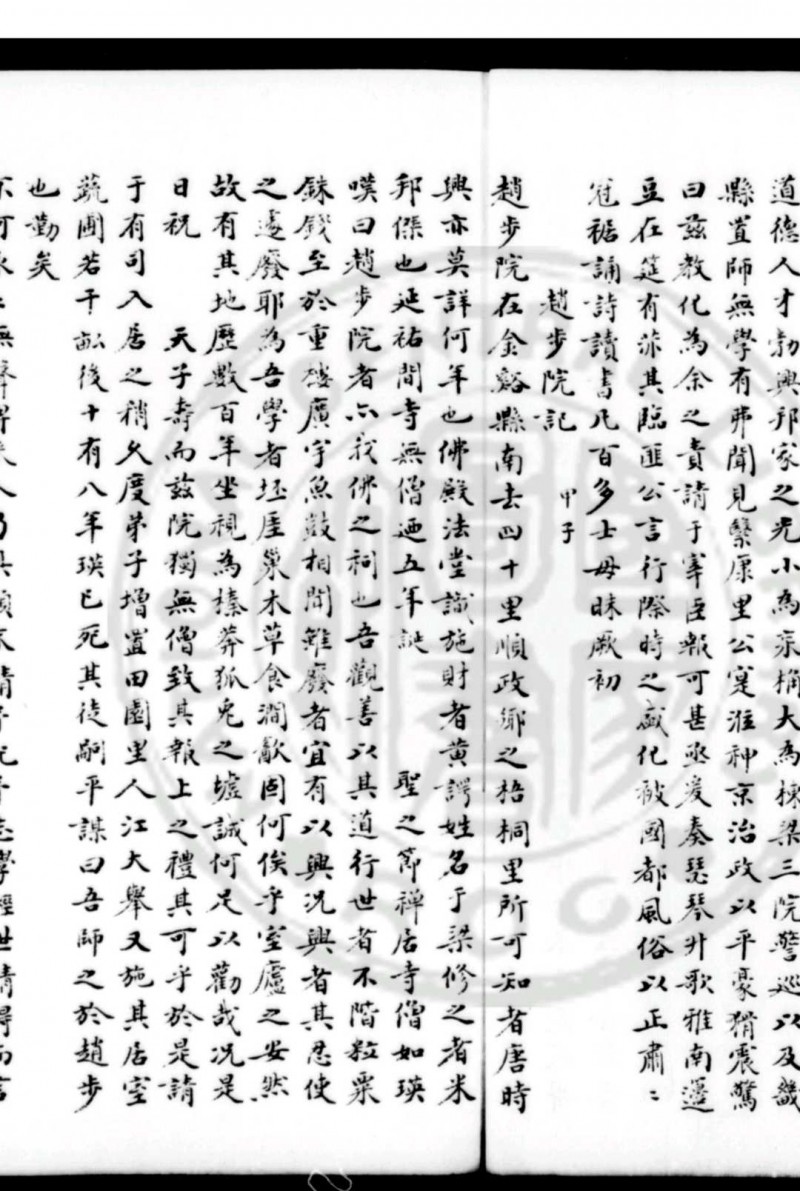 道德人才勃興邦家之光小為杗桷大為棟梁三院警巡以及畿
縣置師無學有弗聞見繄康里公寔涖神京治政以平豪猾震驚
曰茲教化為余之責請于宰臣報可甚亟爰奏瑟琴升歌雅南籩
豆在筵有泲其臨匪公言行際時之盛化被國都風俗以正肅〻
冠裾誦詩讀書凡百多士毋昧厥初
趙步院記 甲子
趙步院在金谿縣南去四十里順政鄉之梧桐里所可知者唐時
興亦莫詳何年也佛殿法堂識施財者黄諤姓名于梁修之者米
邦傑也延祐間寺無僧迺五年誕 聖之節禅居寺僧如瑛
嘆曰趙步院者亦我佛之祠也吾觀善以其道行世者不階粒粟
銖錢至於重樓廣宇魚鼓相聞雖廢者宜有以興況興者其忍使
之遽廢耶為吾學者坯厓巢木草食澗歠固何俟乎室廬之安然
故有其地歷數百年坐視為榛莽狐兎之墟誠何足以勸哉况是
日祝 天子壽而茲院獨無僧致其報上之禮其可乎於是請
于有司入居之稍久度弟子增置田園里人江大舉又施其居室
蔬圃若干畝後十有八年瑛已死其徒嗣平謀曰吾師之於趙步
也勤矣